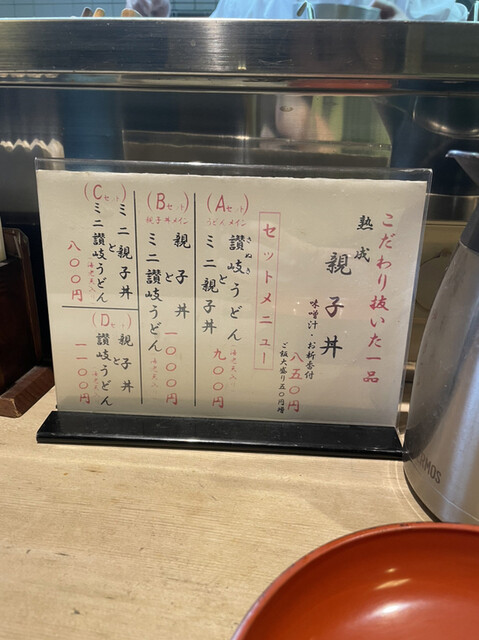 こだわり抜いた一品
熟成
親子丼
味噌汁・お新香付
八五〇円
ご飯大盛り五〇円増
セットメニュー
(Aセット)
うどんメイン
さぬき
讃岐うどん
と
ミニ親子丼
九〇〇円
(Bセット)
親子丼メイン
親子丼
と
ミニ讃岐うどん
一〇〇〇円
(Cセット)
ミニ親子丼
と
ミニ讃岐うどん
八〇〇円
(Dセット)
親子丼
と
讃岐うどん
一一〇〇円
THERMOS